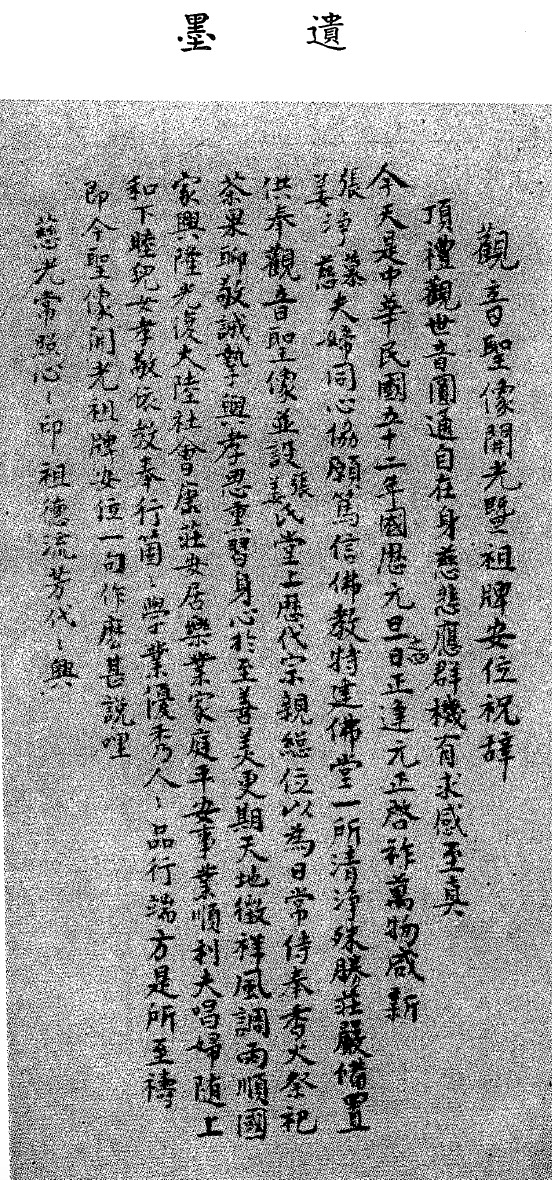 遺墨
觀音聖像開光暨祖牌安位祝辭
頂禮觀世音圓通自在身慈悲應群機有求感至真
今天是中華民國五十二年國曆元旦之日正逢元正啓祚萬物咸新
張淨慕
姜 慈
夫婦同心協願篤信佛教特建佛堂一所清淨殊勝莊嚴備置
供奉觀音聖像並設張姜氏堂上歷代宗親總位以為日常侍奉香火祭祀
茶果聊敬誠摯與孝思熏習身心於至善美更期天地徵祥風調雨順國
家興隆光復大陸社會康莊安居樂業家庭平安事業順利夫唱婦隨上
和下睦兒女孝敬依教奉行箇〻學業優秀人〻品行端方是所至禱
即今聖像開光祖牌安位一句作麼甚說哩
慈光常照心〻印祖德流芳代〻興